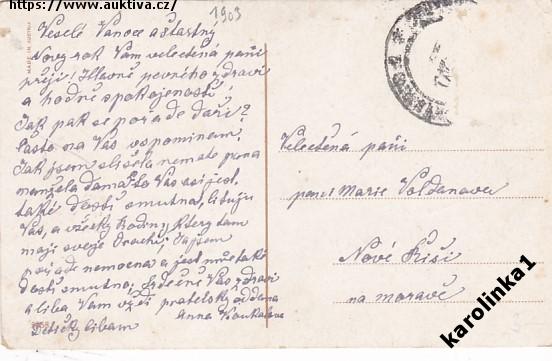 https://www.auktiva.cz/
1903
Veselé Vanoce a šťastny
Novy rok Vam velectená paňi
přeji! Hlavně pevného zdraví
a hodně spokojenosti!
Jak pak se pořade daří?
často na Vás vspominam
Jak jsem slišela nemate pana
manžela doma to Vas asi jest
také dosti smutno, lituju
Vas, a všecky Rodiny, ktery tam
maji svoje Drachy, Ja jsem
pořade nemocna a jest mě také
dosti smutno, Srdečně Vás zdraví
a liba Vam vždi přatelsky oddana
Anna Koukalova
Detičky libam
MADE IN AUSTRIA
Velectěná paňi
paní Marie Voldanova
Nové Řiši
na moravě
karolinka1